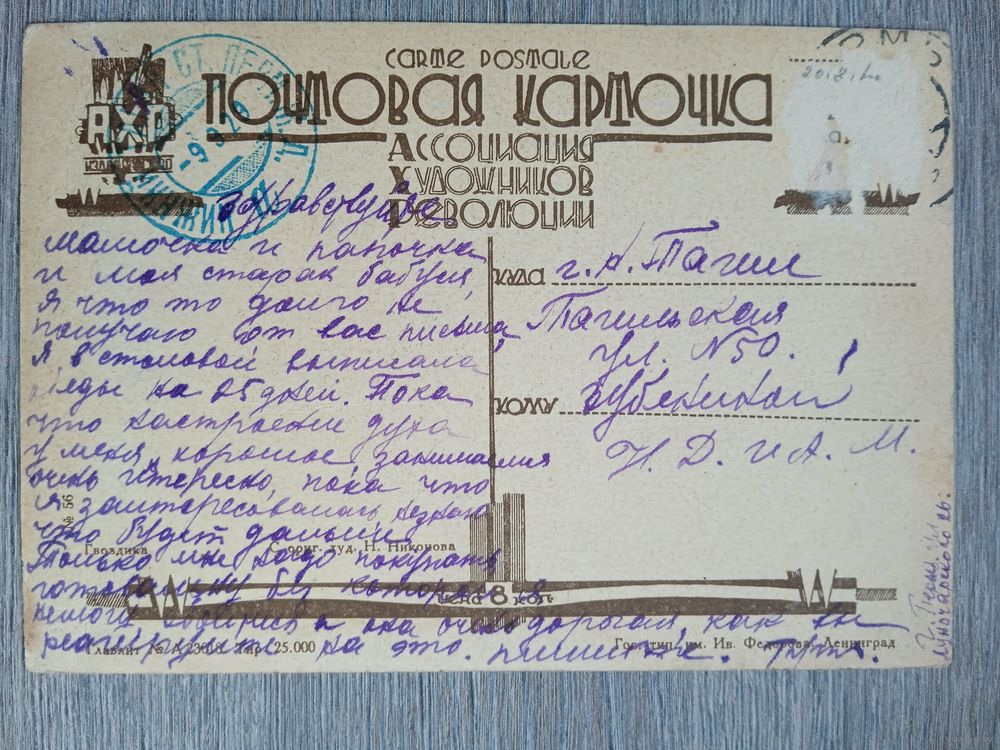 CARTE POSTALE
ПОЧТОВАЯ КАРТОЧКА
АХР
ИЗДАТЕЛЬСТВО
АССОЦИАЦИЯ
ХУДОЖНИКОВ
РЕВОЛЮЦИИ
-9 9 29
Здравствуйте
мамочка и папочка
и моя старая бабуся,
я что то долго не
получаю от вас письма,
Я в столовой выписала
обеды на 25 дней. Пока
что настроение духа
у меня хорошое, занимаемся
очень итересно, пока что
я заитересовалась незнаю
что будет дальше
Только мне надо покупать
готовальню без которой я
немогу и она очень дорогая, как вы
реагируете на это. пишите.
КУДА г. Н. Тагил
Тагильская
ул. N 50.
КОМУ Губкиной
Н. Д. и А. М.
№ 56
Гвоздика С ориг. худ. Н. Никонова
Цена 8 коп.
Главлит № А-23018 Тир. 25.000
Гос. тип. им. Ив. Федорова, Ленинград